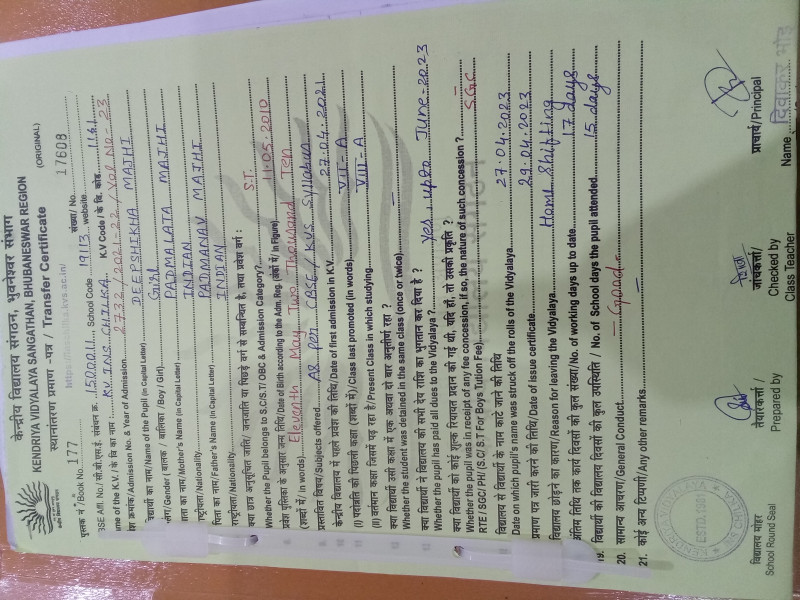 केन्द्रीय विद्यालय संगठन, भुवनेश्वर संभाग
KENDRIYA VIDYALAYA SANGATHAN, BHUBANESWAR REGION
स्थानांतरण प्रमाण -पत्र / Transfer Certificate (ORIGINAL)
पुस्तक नं / Book No. 177 संख्या / No. 17608
BSE Affl. No. / सी.बी.एस.ई. संबंधन क्र. 1500011 School Code 19113 website
ame of the K.V. / के वि का नाम : K.V. INS CHILKA K.V Code / के वि. कोड 1141
श क्रमांक / Admission No. & Year of Admission. 2722 / 2021-22 / Vol No - 23
विद्यार्थी का नाम / Name of the Pupil (in Capital Letter) DEEPSHIKHA MAJHI
लिंग / Gender ( बालक / बालिका / Boy / Girl) Girl
माता का नाम / Mother's Name (in Capital Letter) PADMALATA MAJHI
राष्ट्रीयता / Nationality INDIAN
पिता का नाम / Father's Name (in Capital Letter) PADMANAV MAJHI
राष्ट्रीयता / Nationality INDIAN
क्या छात्र अनुसूचित जाति / जनजाति या पिछड़े वर्ग से सम्बन्धित है, तथा प्रवेश वर्ग :
Whether the Pupil belongs to S.C/S.T/ OBC & Admission Category? S.T.
प्रवेश पुस्तिका के अनुसार जन्म तिथि / Date of Birth according to the Adm. Reg. (अंकों में / in Figure) 11.05.2010
(शब्दों में / in words) Eleventh May Two Thousand Ten
प्रस्तावित विषय / Subjects offered As per CBSE / KVS Syllabus
केन्द्रीय विद्यालय में पहले प्रवेश की तिथि / Date of first admission in K.V. 27.04.2021
(I) पदोन्नति की पिछली कक्षा (शब्दों में) / Class last promoted (in words) VII - A
(II) वर्तमान कक्षा जिसमें पढ़ रहा है / Present Class in which studying VIII - A
क्या विद्यार्थी उसी कक्षा में एक अथवा दो बार अनुत्तीर्ण रहा ?
Whether the student was detained in the same class (once or twice) —
क्या विद्यार्थी ने विद्यालय की सभी देय राशि का भुगतान कर दिया है ?
Whether the pupil has paid all dues to the Vidyalaya ? Yes, upto June - 2023
क्या विद्यार्थी को कोई शुल्क रियायत प्रदान की गई थी, यदि हाँ, तो उसकी प्रकृति ?
Whether the pupil was in receipt of any fee concession, if so, the nature of such concession ?
RTE / SGC / PH / (S.C/ S.T For Boys Tution Fee) S.G.C
विद्यालय से विद्यार्थी के नाम काटे जाने की तिथि
Date on which pupil's name was struck off the rolls of the Vidyalaya 27.04.2023
प्रमाण पत्र जारी करने की तिथि / Date of issue certificate 29.04.2023
विद्यालय छोड़ने का कारण / Reason for leaving the Vidyalaya Home Shifting
अंतिम तिथि तक कार्य दिवसों की कुल संख्या / No. of working days up to date 17 days
19. विद्यार्थी की विद्यालय दिवसों की कुल उपस्थिति / No. of School days the pupil attended 15 days
20. सामान्य आचरण / General Conduct - Good -
21. कोई अन्य टिप्पणी / Any other remarks —
विद्यालय मोहर
School Round Seal
तैयारकर्त्ता /
Prepared by
जांचकर्त्ता /
Checked by
Class Teacher
प्राचार्य / Principal
Name दिवाकर भोई